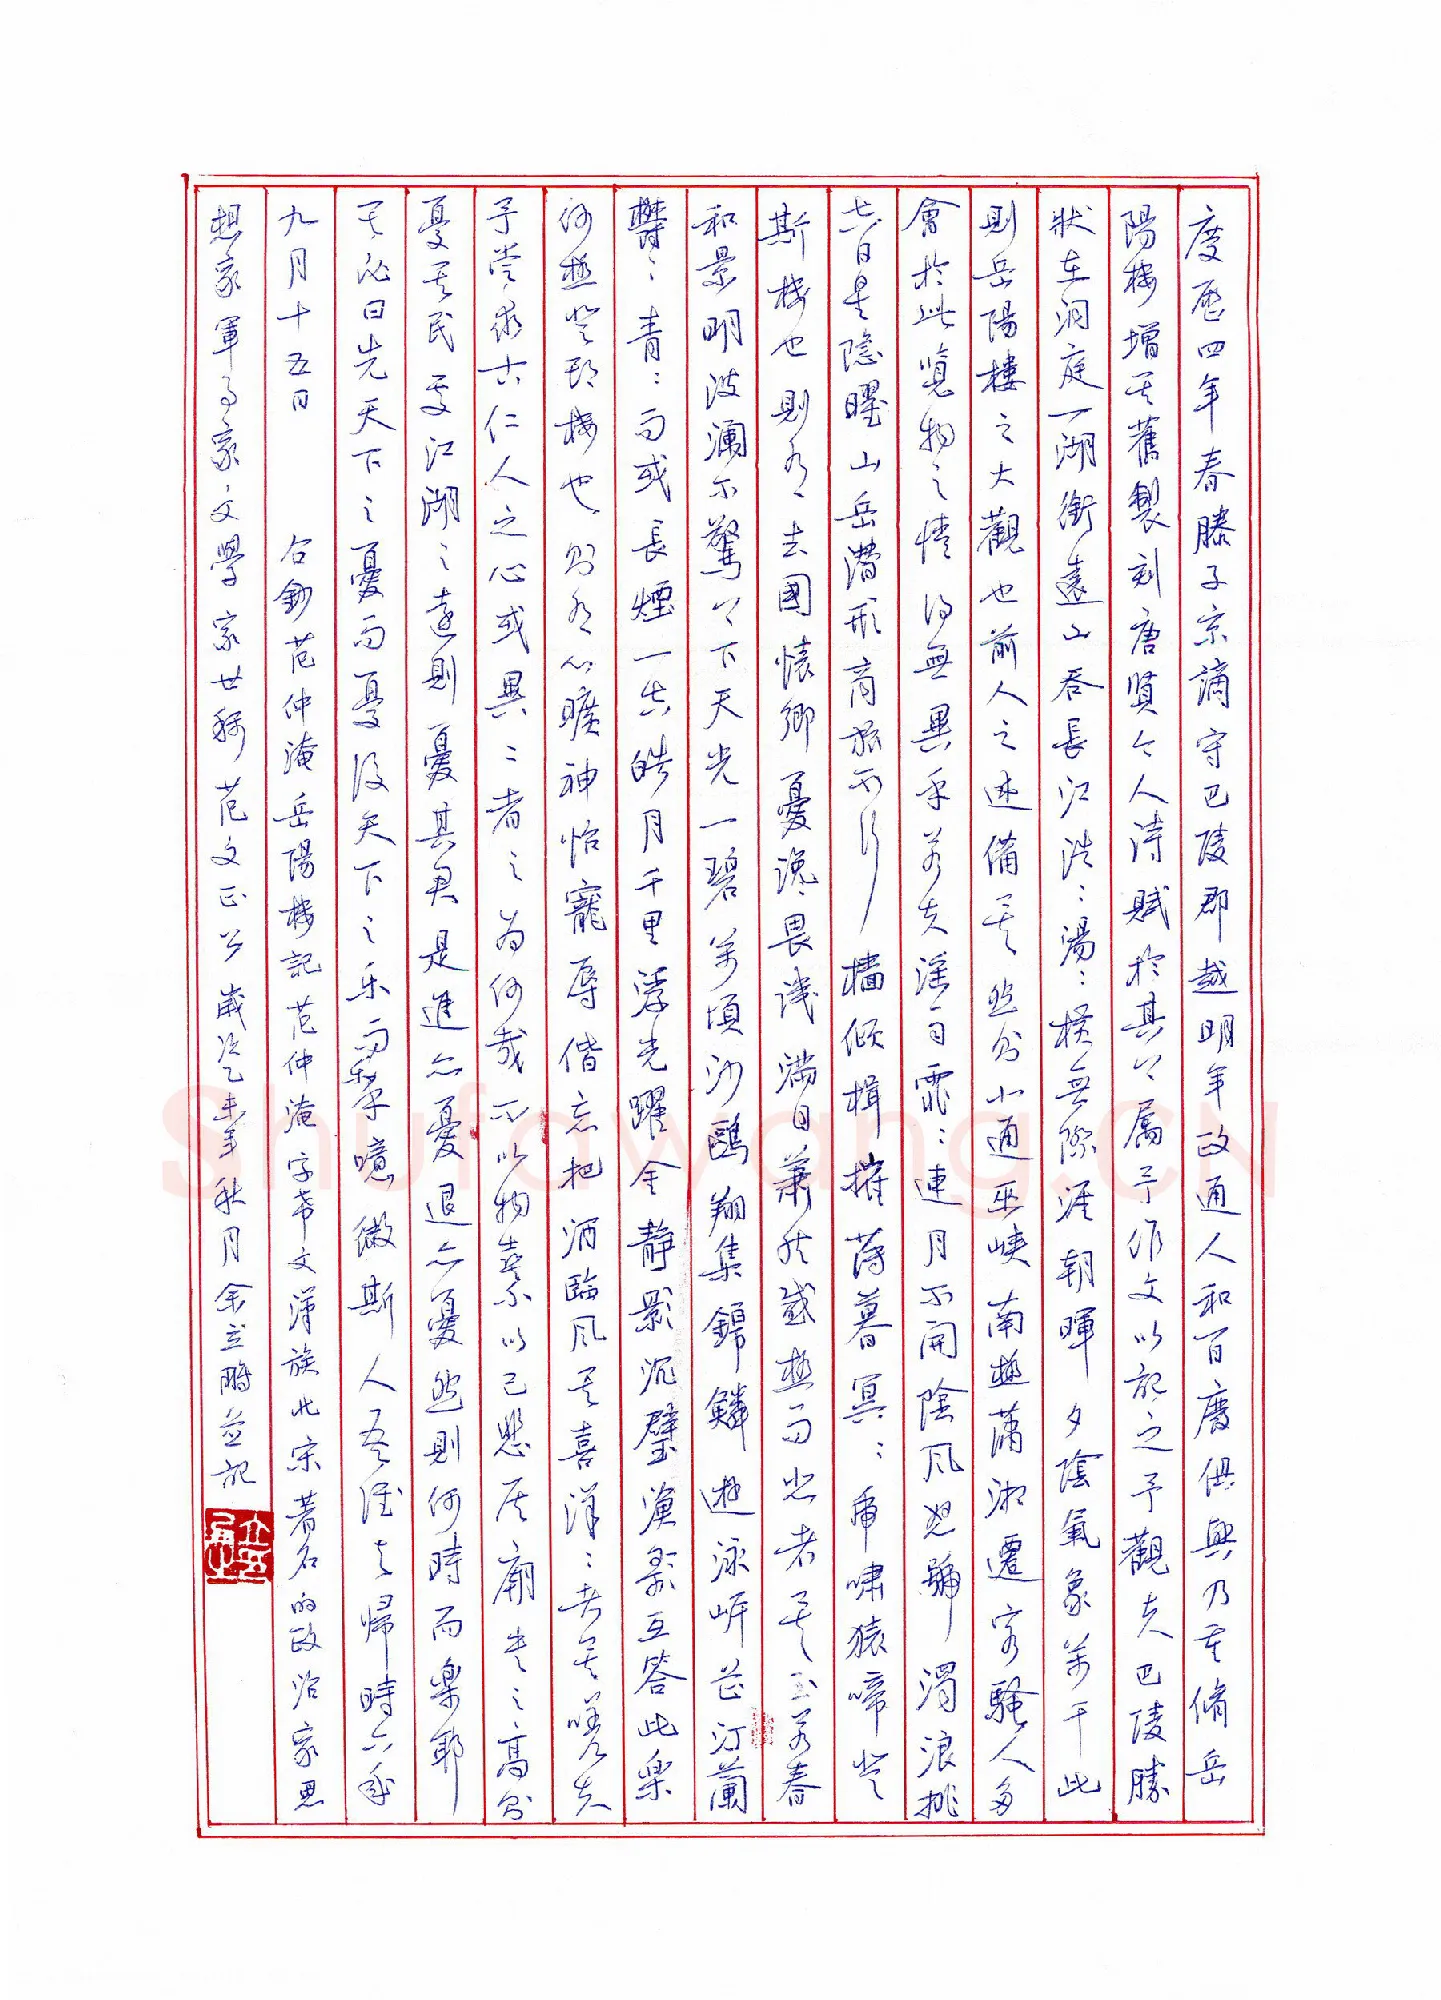 慶歷四年春滕子京謫守巴陵郡越明年政通人和百廢俱興乃重脩岳
陽樓增其舊製刻唐賢今人詩賦於其上屬予作文以記之予觀夫巴陵勝
狀在洞庭一湖銜遠山吞長江浩〻湯〻橫無際涯朝暉夕陰氣象萬千此
則岳陽樓之大觀也前人之述備矣然則北通巫峽南極瀟湘遷客騷人多
會於此覽物之情得無異乎若夫淫雨霏〻連月不開陰風怒號濁浪排
空日星隱曜山岳潛形商旅不行檣傾楫摧薄暮冥〻虎嘯猿啼登
斯樓也則有去國懷鄉憂讒畏譏滿目蕭然感極而悲者矣至若春
和景明波瀾不驚上下天光一碧萬頃沙鷗翔集錦鱗遊泳岸芷汀蘭
鬱〻青〻而或長煙一空皓月千里浮光躍金靜影沉璧漁歌互答此樂
何極登斯樓也則有心曠神怡寵辱偕忘把酒臨風其喜洋〻者矣嗟夫
予嘗求古仁人之心或異二者之為何哉不以物喜不以己悲居廟堂之高則
憂其民處江湖之遠則憂其君是進亦憂退亦憂然則何時而樂耶
其必曰先天下之憂而憂後天下之乐而樂乎噫微斯人吾誰與歸時六年
九月十五日 右鈔范仲淹岳陽樓記范仲淹字希文漢族北宋著名的政治家思
想家軍事家文學家世稱范文正公歲次乙未年秋月余立鵬並記
Shufawang.CN